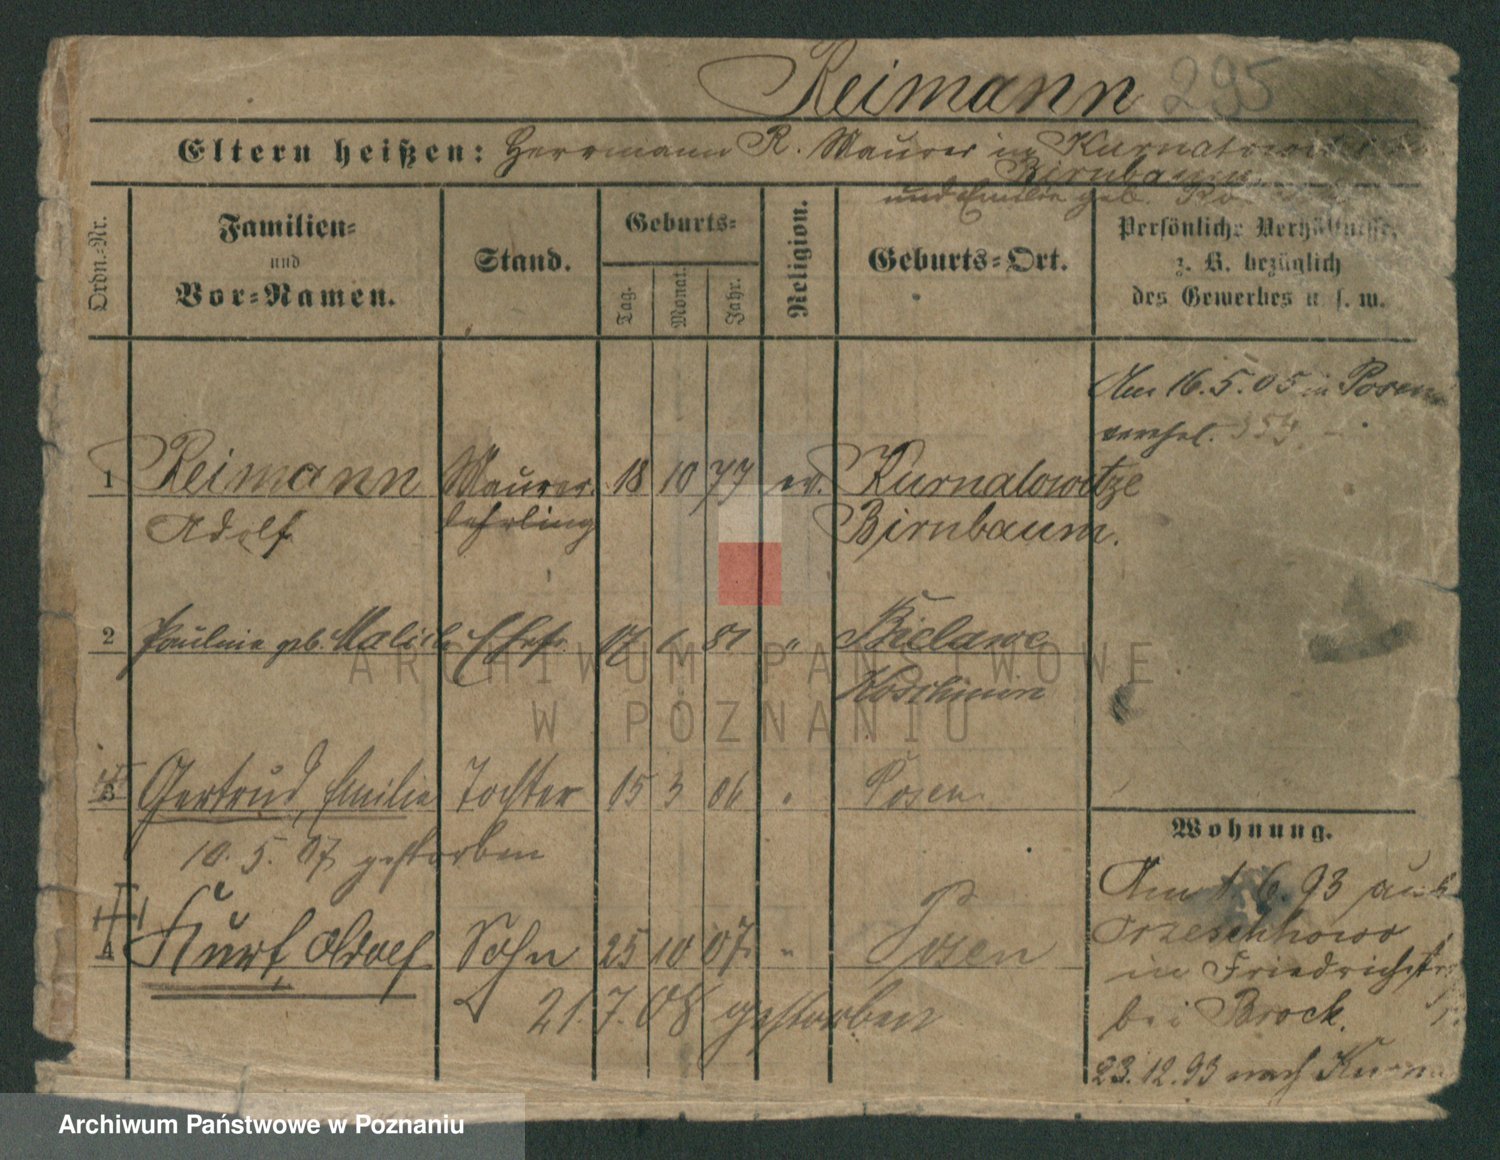 Reimann 295
Eltern heißen: Herrmann R. Maurer in Kurnatowitze
Birnbaum
und Emilie geb.
Ordn.-Nr.
Familien-
und
Vor-Namen.
Stand.
Geburts-
Tag.
Monat.
Jahr.
Religion.
Geburts-Ort.
Persönliche Verhältnisse,
z. B. bezüglich
des Gewerbes u. s. w.
Am 16.5.05 in Posen
verehel.
1 Reimann Maurer 18 10 77 ev. Kurnatowitze
Adolf lehrling Birnbaum.
2 Pauline geb. Ehefr. 81 " Bielawe
Koschmin
3 Gertrud, Emilie Tochter 15 3 06 " Posen
10. 5. 07 gestorben
4 Kurt Adolf Sohn 25 10 07 " Posen
21. 7. 08 gestorben
Wohnung.
Am 1.6.93 aus
Orzeschkowo
in Friedrichstr.
bei Brock.
23.12.93 nach
ARCHIWUM PAŃSTWOWE
W POZNANIU
Archiwum Państwowe w Poznaniu